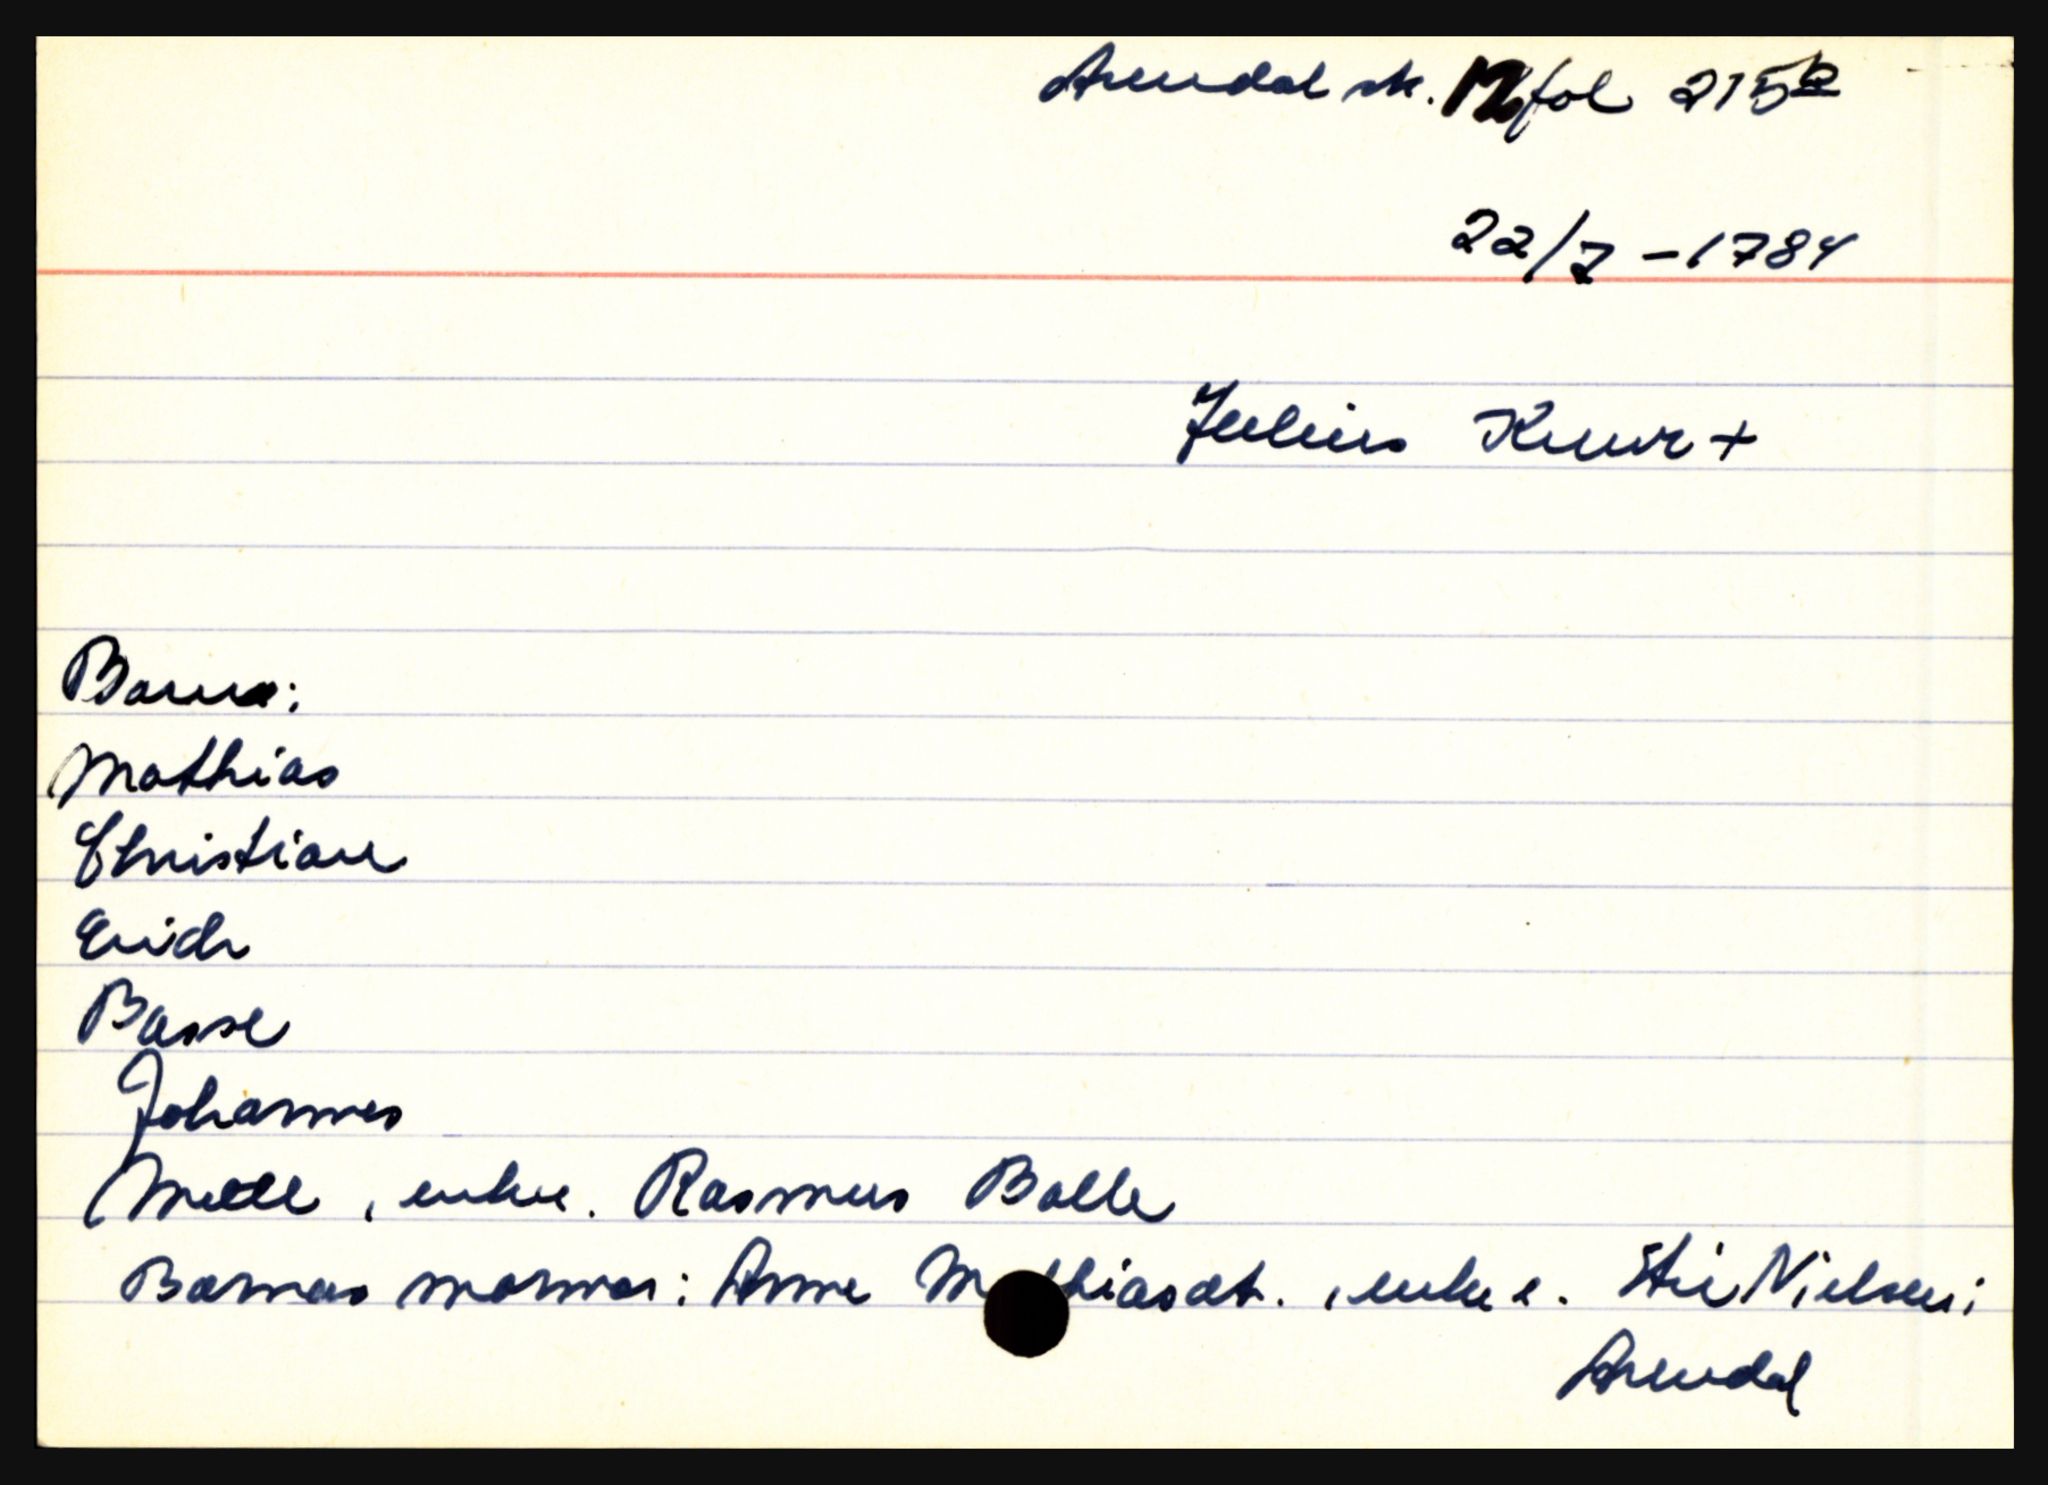 Arendal sk. 12 fol 215b
22/7 - 1784
Julius Knur +
Barna:
Mathias
Christian
Erich
Basse
Johannes
Mette, enke e. Rasmus Balle
Barnas mormor: Anne M thiasdt., enke e. Sti Nielsen i
Arendal